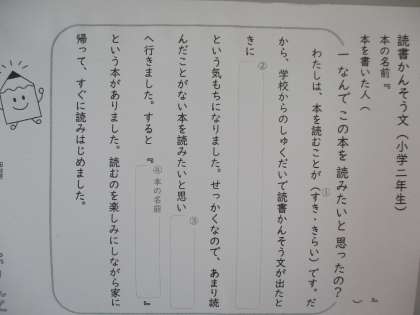 読書かんそう文（小学二年生）
本の名前『　　』
本を書いた人（　　）
一 なんで この本を 読みたいと 思ったの？
わたしは、本を読むことが（すき・きらい）です。だ
①
から、学校からのしゅくだいで読書かんそう文が出たと
きに
②
という気もちになりました。せっかくなので、あまり読
んだことがない本を読みたいと思い
③
へ行きました。すると『
④ 本の名前
』
という本がありました。読むのを楽しみにしながら家に
帰って、すぐに読みはじめました。